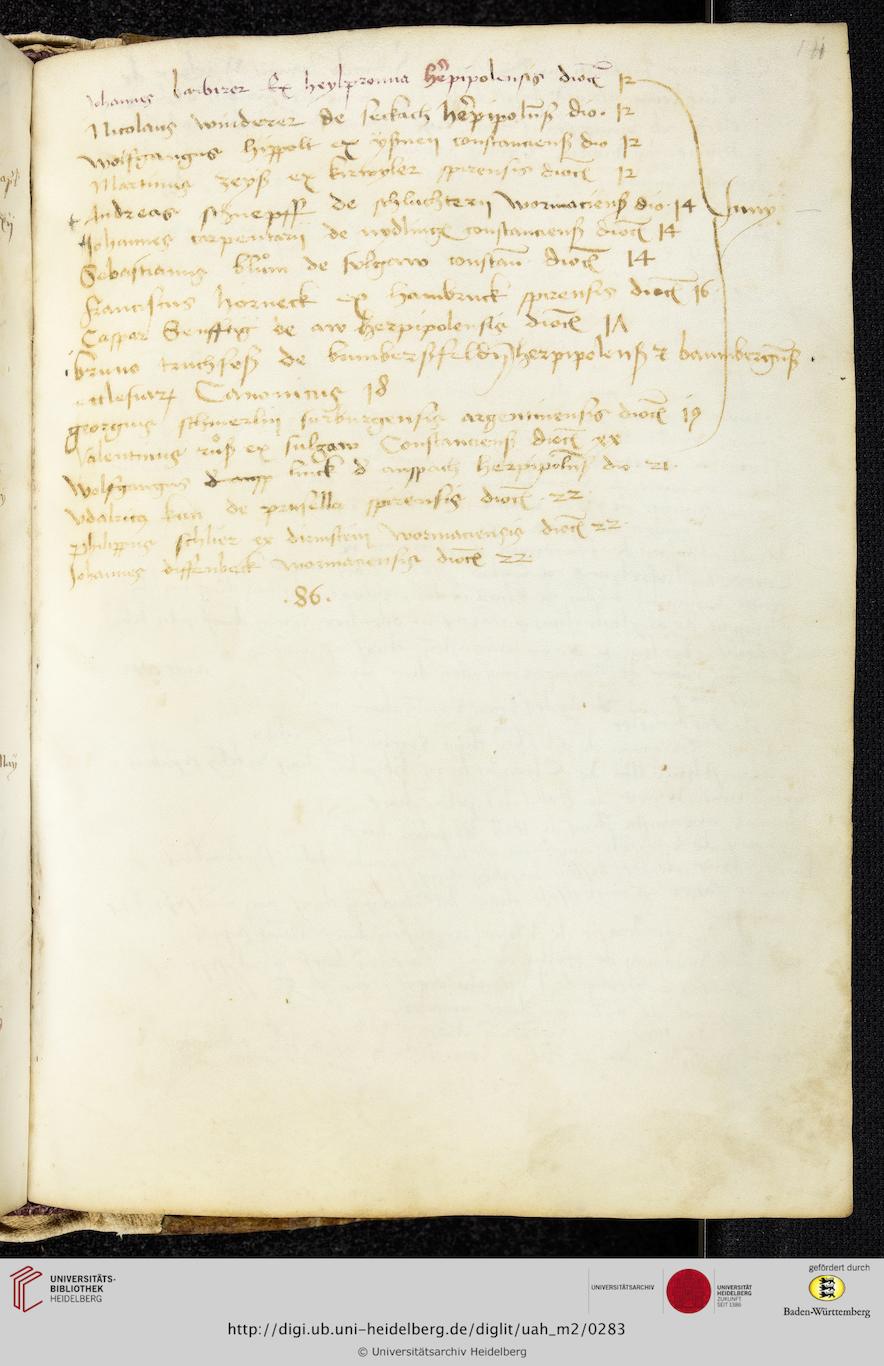 Johannes barbirer Ex heylpronna herbipolensis dioc 12
Nicolaus winderer de seckach herbipolens dio. 12
wolfgangus hippolt ex ysneij constanciens dio 12
Martinus zeyß ex kirwyler spirensis dioc 12
Andreas schnepff de schluchterij wormaciens dio. 14
Junij
Johannes carpentarij de nydling constanciens dioc 14
Sebastianus blum de sulgaw constan dioc 14
franciscus horneck ex hambruck spirensis dioc 16
Caspar Senfftig de aw herbipolensis dioc 1Λ
bruno truchses de herpipolens et bambergens
ecclesiar Canonicus 18
georgius schmerlin surburgensis argentinensis dioc 19
Valentinus ruß ex sulgaw Constanciens dioc xx
Wolfgangus linck d anspach herpipolens dio. 21.
Vdalricus de prusella spirensis dioc. 22
philippus schlier ex dirmstein wormaciensis dioc 22
Johannes diffenbeck wormaciensis dioc 22
.86.
UNIVERSITÄTS-
BIBLIOTHEK
HEIDELBERG
UNIVERSITÄTSARCHIV
UNIVERSITÄT
HEIDELBERG
ZUKUNFT
SEIT 1386
gefördert durch
Baden-Württemberg
http://digi.ub.uni-heidelberg.de/diglit/uah_m2/0283
© Universitätsarchiv Heidelberg